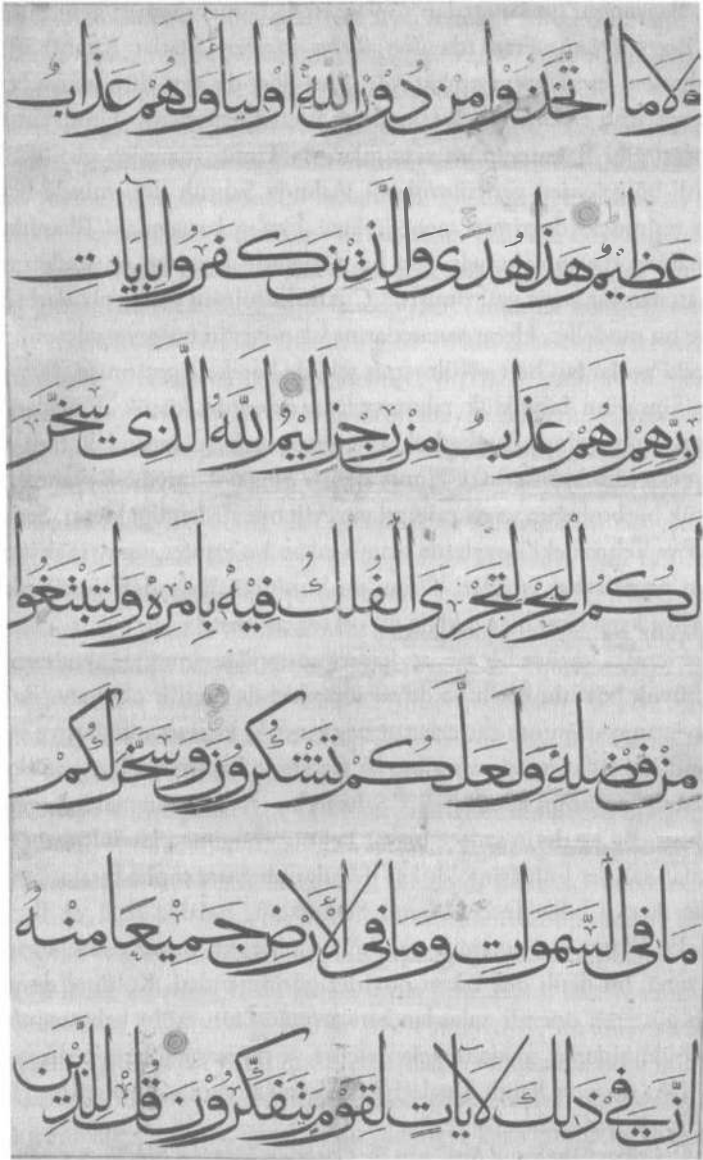 ولا ما اتخذوا من دون الله اولياء ولهم عذاب
عظيم هذا هدى والذين كفروا بآيات
ربهم لهم عذاب من رجز اليم الله الذى سخر
لكم البحر لتجرى الفلك فيه بامره ولتبتغوا
من فضله ولعلكم تشكرون وسخر لكم
ما فى السموات وما فى الارض جميعا منه
ان فى ذلك لآيات لقوم يتفكرون قل للذين